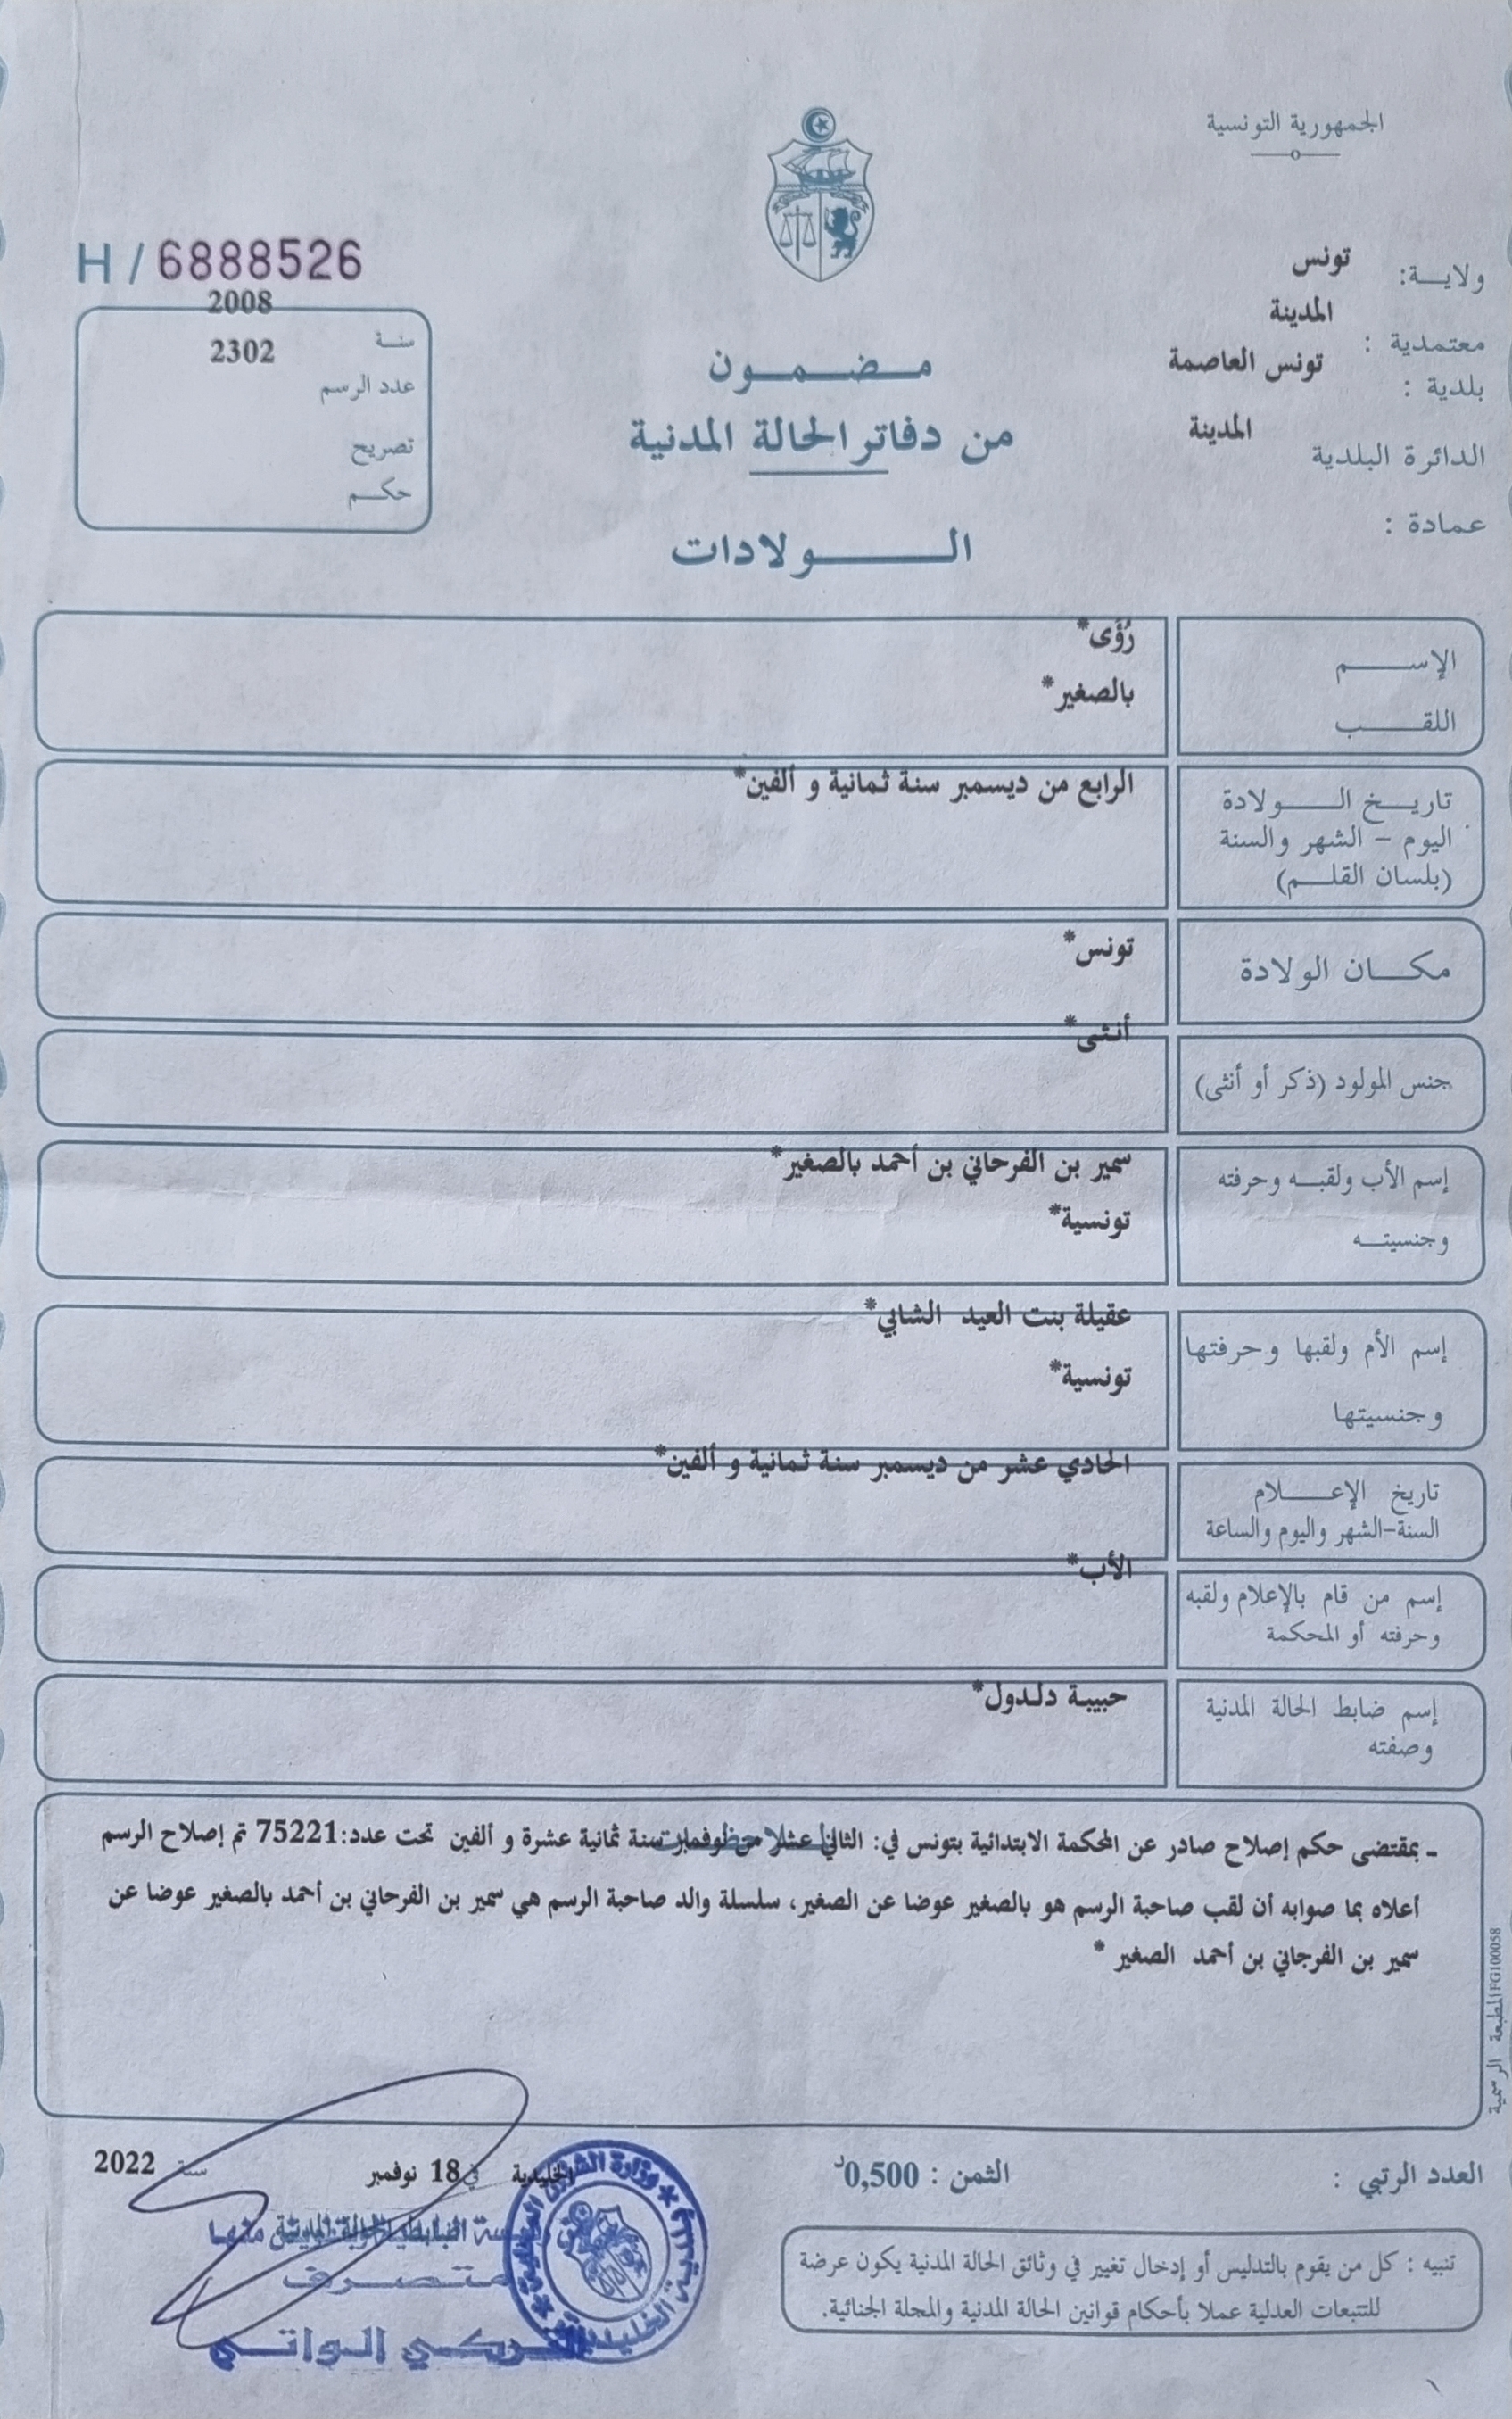 الجمهورية التونسية
ولايـــة: تونس
معتمدية : المدينة
بلدية : تونس العاصمة
الدائرة البلدية المدينة
عمادة :
H / 6888526
2008
سنـة
2302
عدد الرسم
تصريح
حكـــم
مـــضـــمـــون
من دفاتر الحالة المدنية
الـــــــولادات
الإســــــم
رُؤَى*
اللقـــــب
بالصغير*
تاريـــخ الـــــولادة
اليوم – الشهر والسنة
(بلسان القلـــم)
الرابع من ديسمبر سنة ثمانية و ألفين*
مكـــان الولادة
تونس*
جنس المولود (ذكر أو أنثى)
أنثى*
إسم الأب ولقبـــه وحرفته
سمير بن الفرحاني بن أحمد بالصغير*
وجنسيتـــه
تونسية*
إسم الأم ولقبها وحرفتها
عقيلة بنت العيد الشابي*
وجنسيتها
تونسية*
تاريخ الإعـــــلام
السنة-الشهر واليوم والساعة
الحادي عشر من ديسمبر سنة ثمانية و ألفين*
إسم من قام بالإعلام ولقبه
وحرفته أو المحكمة
الأب*
إسم ضابط الحالة المدنية
وصفته
حبيبة دلدول*
ـ بمقتضى حكم إصلاح صادر عن المحكمة الابتدائية بتونس في: الثاني عشر من نوفمبر سنة ثمانية عشرة و ألفين تحت عدد:75221 تم إصلاح الرسم
أعلاه بما صوابه أن لقب صاحبة الرسم هو بالصغير عوضا عن الصغير، سلسلة والد صاحبة الرسم هي سمير بن الفرحاني بن أحمد بالصغير عوضا عن
سمير بن الفرجاني بن أحمد الصغير *
المطبعة الرسمية FG100058
العدد الرتبي :
الثمن : 0,500د
الخليدية في 18 نوفمبر سنة 2022
متصـــرف
تنبيه : كل من يقوم بالتدليس أو إدخال تغيير في وثائق الحالة المدنية يكون عرضة
للتتبعات العدلية عملا بأحكام قوانين الحالة المدنية والمجلة الجنائية.